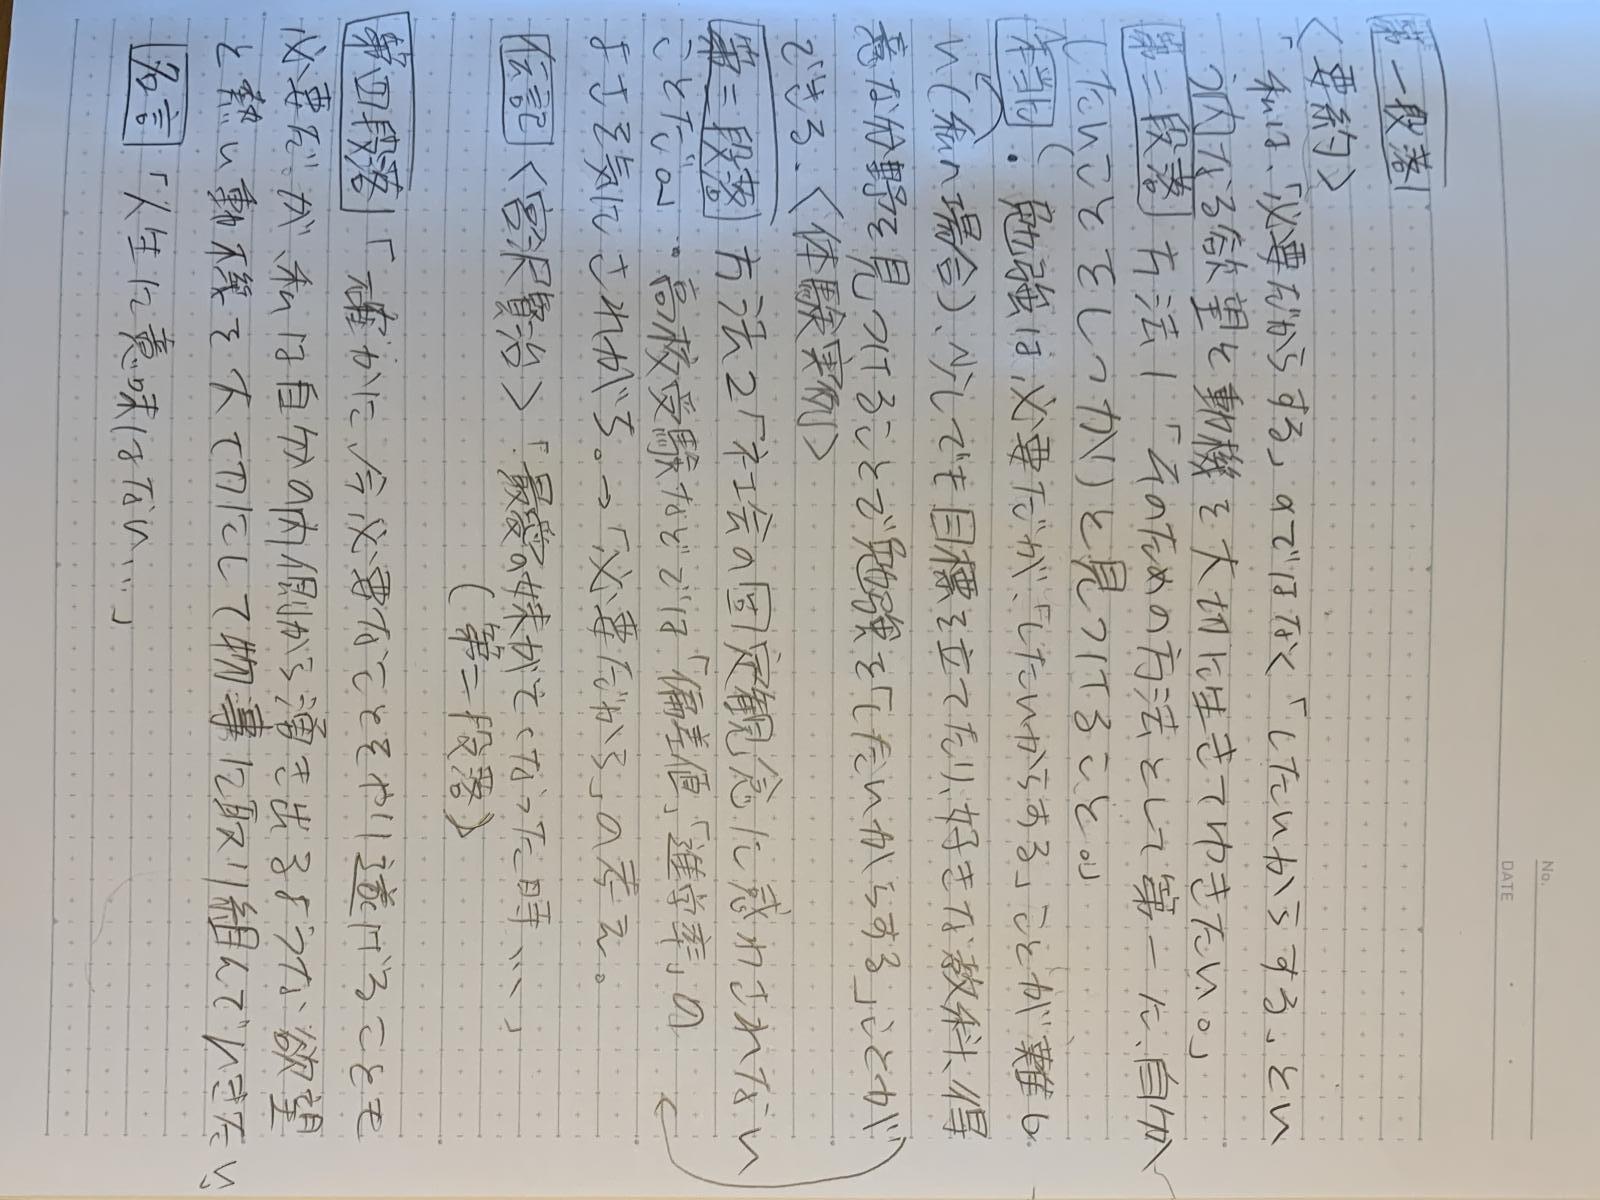 第一段落
〈要約〉
「私は、「必要だからする」のではなく「したいからする」とい
う内なる欲望と動機を大切に生きてゆきたい。」
第二段落 方法1「そのための方法として第一に、自分が
したいことをしっかりと見つけること。」
本当に
・勉強は必要だが、「したいからする」ことが難し
い(私の場合)、少しでも目標を立てたり、好きな教科、得
意な分野を見つけることで勉強を「したいからする」ことが
できる.〈体験実例〉
第三段落 方法2「社会の固定観念に惑わされない
ことだ。」 高校受験などでは「偏差値」「進学率」の
ような気にされがち。→「必要だから」の考え。
伝記〈宮沢賢治〉「最愛の妹が亡くなった時…」
(第二段落)
第四段落「確かに、今必要なことをやり遂げることも
必要だ。が、私は自分の内側から湧き出るような欲望
と熱い動機を大切にして物事に取り組んでいきたい
名言「人生に意味はない…」
No.
DATE